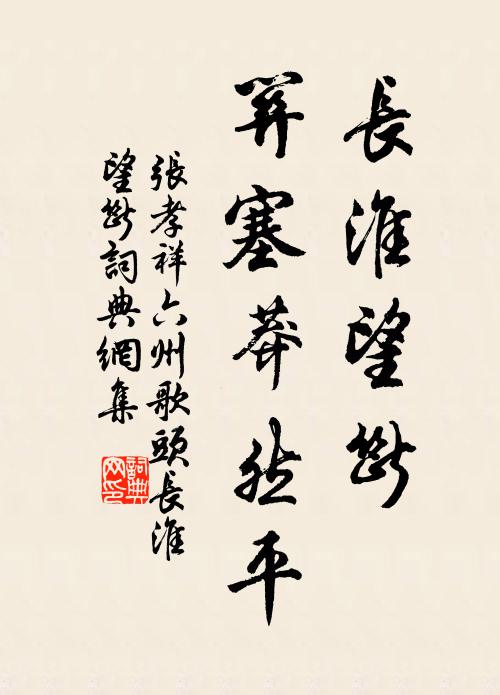 長淮望斷
關塞莽然平
張孝祥六州歌頭長淮
望斷詞典網集
詞典
网印